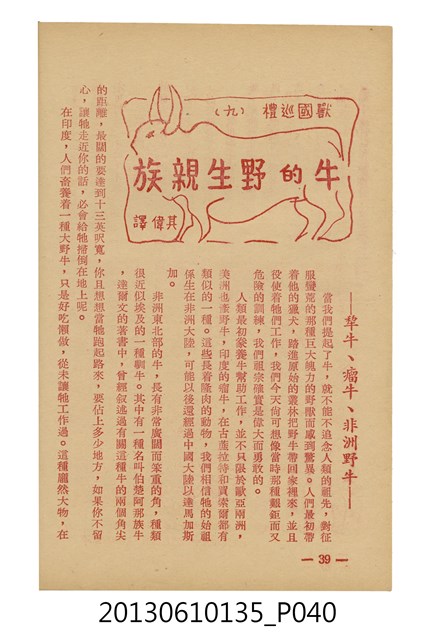 獸國巡禮（九）
牛的野生親族
其偉譯
——犂牛、瘤牛、非洲野牛——
當我們提起了牛，就不能不追念人類的祖先，對征
服蠻荒的那種巨大魄力的野獸而感到驚異。人們最初帶
着他的獵犬，踏進原始的叢林把野牛帶回家裡來，並且
役使着牠們工作，我們今天尚可想像當時那種艱鉅而又
危險的訓練，我們祖宗確實是偉大而勇敢的。
人類最初豢養牛幫助工作，並不只限於歐亞兩洲，
美洲也產野牛，印度的瘤牛，在古拉特和買索爾都有
類似的一種。這些長着隆肉的動物，我們相信牠的始祖
係生在非洲大陸，可能以後還經過中國大陸以達馬加斯
加。
非洲東北部的牛，長有非常廣闊而笨重的角，種類
很近似埃及的一種馴牛。其中有一種名叫伯楚阿那族牛
，達爾文的著書中，曾經叙述過有關這種牛的兩個角尖
的距離，最闊的要達到十三英呎寬，你且想想當牠跑起路來，要佔上多少地方，如果你不留
心，讓牠走近你的話，必會給牠掃倒在地上呢。
在印度，人們畜養着一種大野牛，只是好吃懶做，從未讓牠工作過。這種龐然大物，在
— 39 —
20130610135_P040